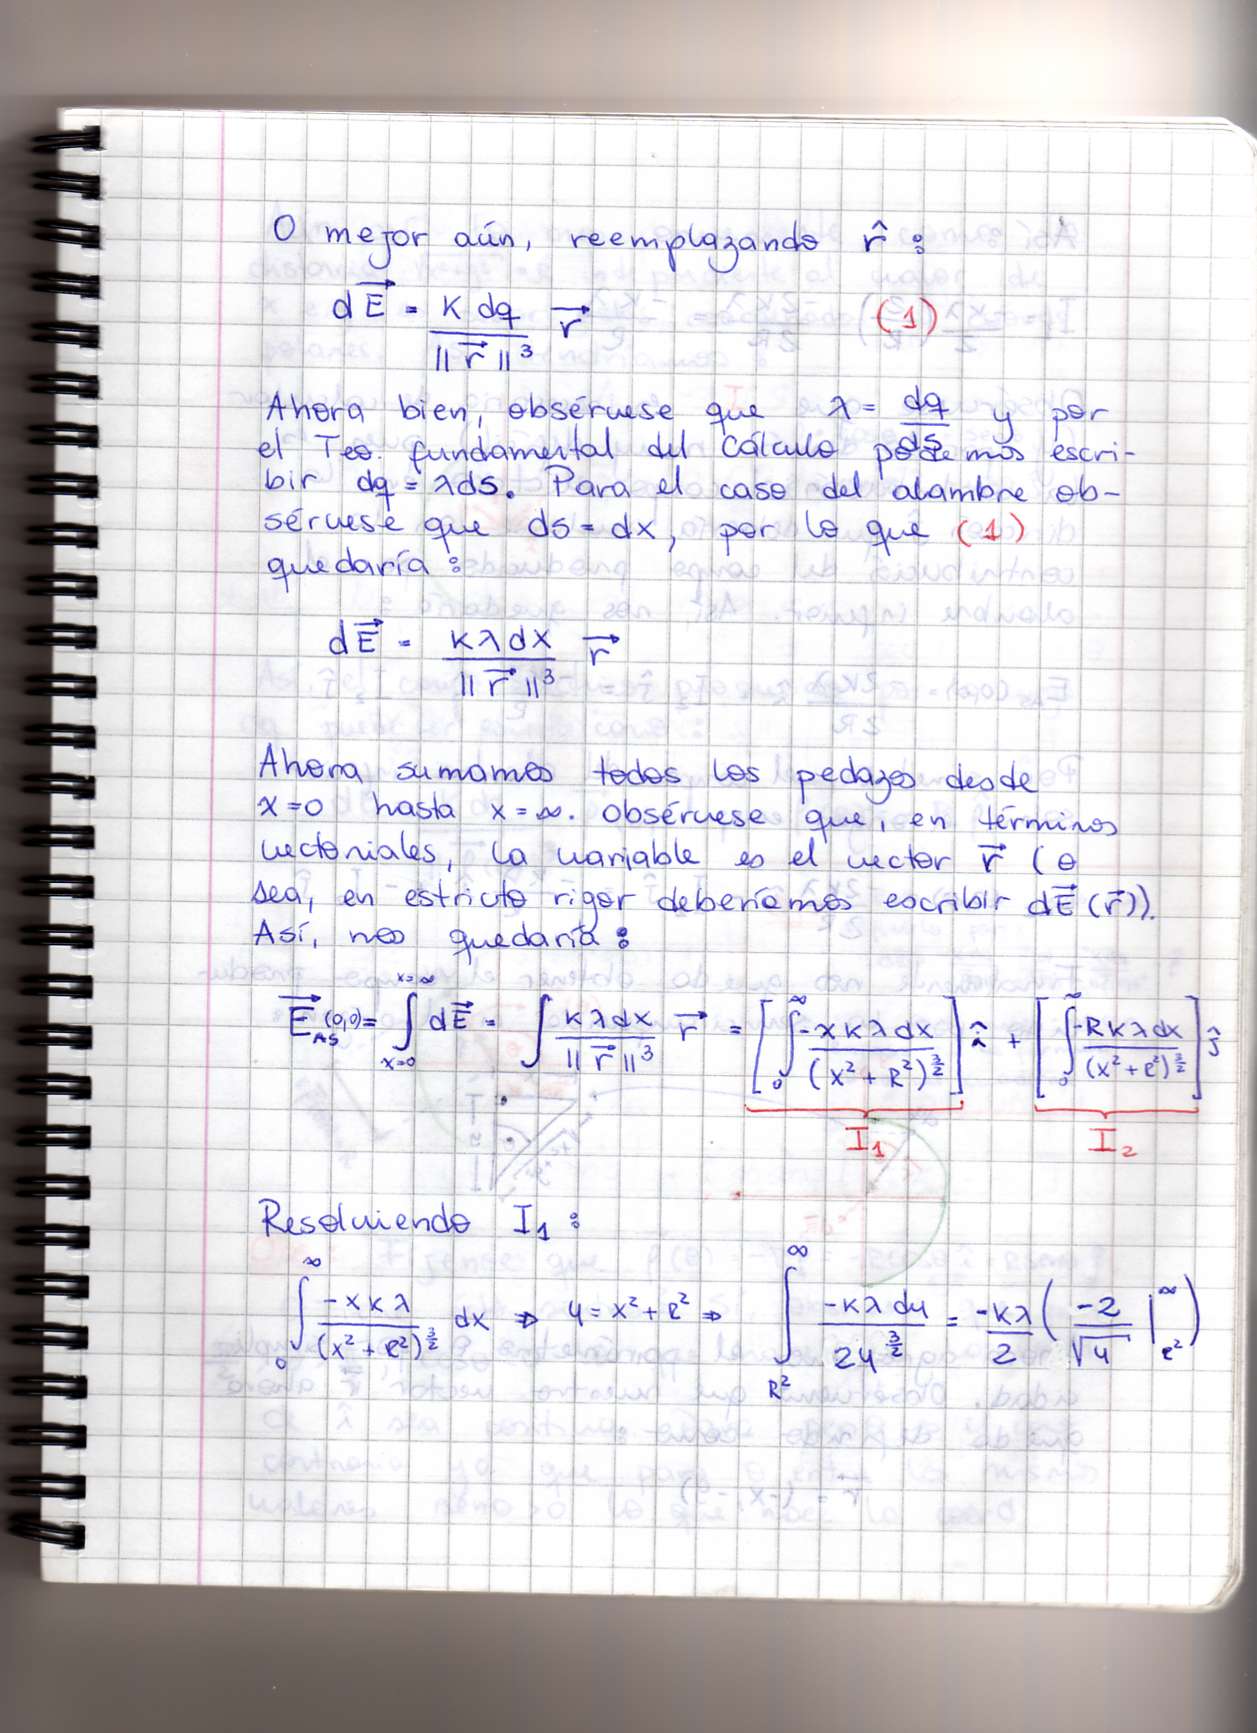 O mejor aún, reemplazando r̂ :
dE⃗ = K dq / ‖r⃗‖³ r⃗ (1)
Ahora bien, obsérvese que λ = dq/ds y por
el Teo. fundamental del Cálculo podemos escri-
bir dq = λds. Para el caso del alambre ob-
sérvese que ds = dx, por lo que (1)
quedaría :
dE⃗ = Kλdx / ‖r⃗‖³ r⃗
Ahora sumamos todos los pedazos desde
x=0 hasta x=∞. Obsérvese que, en términos
vectoriales, la variable es el vector r⃗ (o
sea, en estricto rigor deberíamos escribir dE⃗(r⃗)).
Así, nos quedaría :
E⃗_AS(0,0) = ∫_{x=0}^{x=∞} dE⃗ = ∫ Kλdx / ‖r⃗‖³ r⃗ = [∫_0^∞ -xKλdx / (x²+R²)^{3/2}] î + [∫_0^∞ -RKλdx / (x²+R²)^{3/2}] ĵ
I₁ I₂
Resolviendo I₁ :
∫_0^∞ -xKλ / (x²+R²)^{3/2} dx ⇒ u = x²+R² ⇒ ∫_{R²}^∞ -Kλdu / 2u^{3/2} = -Kλ/2 ( -2/√u |_{R²}^∞ )